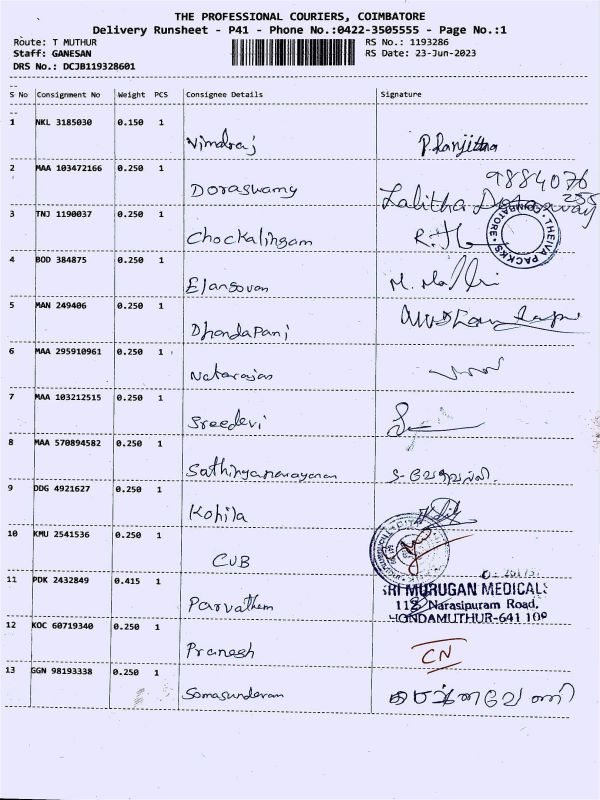 THE PROFESSIONAL COURIERS, COIMBATORE
Delivery Runsheet - P41 - Phone No.:0422-3505555 - Page No.:1
Route: T MUTHUR RS No.: 1193286
Staff: GANESAN RS Date: 23-Jun-2023
DRS No.: DCJB119328601
S No Consignment No Weight PCS Consignee Details Signature
1 NKL 3185030 0.150 1 Vimalraj P. Ranjitha
9884076
2 MAA 103472166 0.250 1 Doraswamy Lalitha
255
3 TNJ 1190037 0.250 1 Chockalingam
THEIVA PACKKS COIMBATORE
4 BOD 384875 0.250 1 Elangovan
5 MAN 249406 0.250 1 Dhandapani
6 MAA 295910961 0.250 1 Natarajan
7 MAA 103212515 0.250 1 Sreedevi
8 MAA 570894582 0.250 1 Sathinyanarayanan
9 DDG 4921627 0.250 1 Kohila
10 KMU 2541536 0.250 1 CUB
11 PDK 2432849 0.415 1 Parvathem
SRI MURUGAN MEDICALS
112, Narasipuram Road,
THONDAMUTHUR-641 109
12 KOC 60719340 0.250 1 Pranesh CN
13 GGN 98193338 0.250 1 Somasunderam